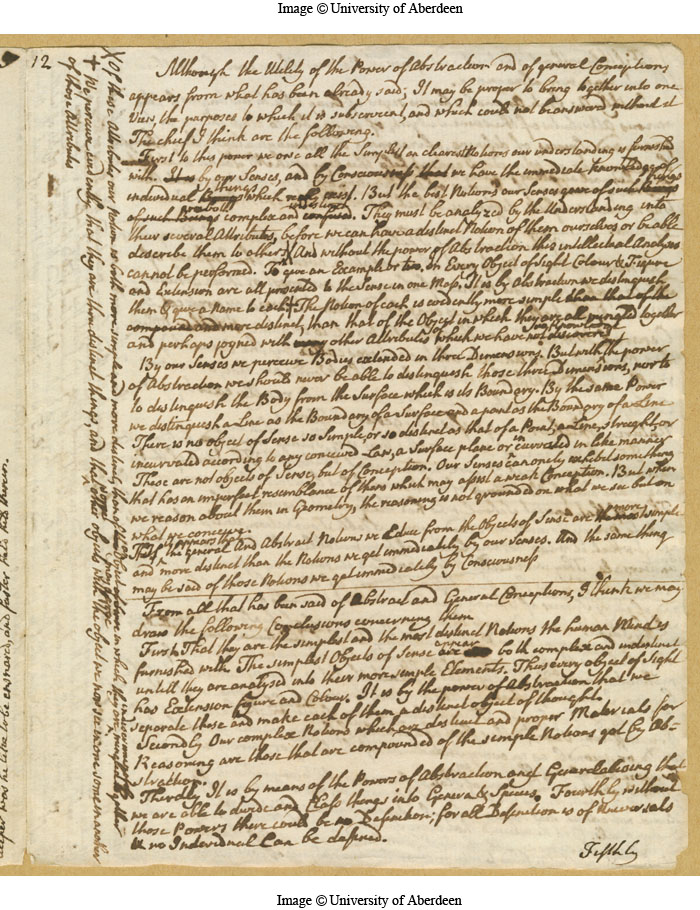 Image © University of Aberdeen
12
Although the Utility of the Power of Abstraction and of general Conceptions,
appears from what has been already said; It may be proper to bring together into one
View, the purposes to which it is subservient, and which could not be answerd without it
The chief I think are the following.
First to this power we owe all the Simplest an clearest Notions our understanding is furnished
with. It is by our Senses, and by Consciousness that we have the immediate knowledge of
individual things which really exist. But the best Notions our Senses gave of such things
of such are both complex and indistinct. They must be analyzed by the Understanding into
their several Attributes, before we can have a distinct Notion of them ourselves or be able
describe them to others X And without the power of Abstraction this intellectual Analysis
cannot be performed. To give an Example or two, in Every Object of Sight Colour & Figure
and Extension are all presented to the Sense in one Mass. It is by Abstraction we distinguish
them & give a Name to each + The Notion of each is evidently more simple than that of the
compound and more distinct, than that of the Object in which they are all mingled together
and perhaps joyned with many other Attributes of which we have not discovered
By our Senses we perceive Bodies extended in three Dimensions. But with the power
of Abstraction we should never be able to distinguish those three dimensions, nor to
to distinguish the Body from the Surface which is its Boundary. By the same Power
we distinguish a Line as the Boundary of a Surface and a point as the Boundary of a Line
There is no object of Sense so Simple, or so distinct as that of a Point, a Line, streight, or
incurvated according to any conceived Law, a Surface plane or incurvated in like manner
These are not objects of Sense, but of Conception. Our Senses can onely exhibit something
that has an imperfect resemblance of them which may assist a weak Conception. But when
we reason about them in Geometry, the reasoning is not grounded on what we see but on
what we conceive.
Thus it appears that the general and Abstract Notions we educe from the Objects of Sense are more simple
and more distinct than the Notions we get immediately by our Senses. And the same thing
may be said of those Notions we get immediately by Consciousness
From all that has been said of Abstract and General Conceptions, I think we may
draw the following Conclusions concerning them
First That they are the simplest and the most distinct Notions the human Mind is
furnished with. The Simplest Objects of Sense appear both complex and indistinct
untill they are analysed into their more simple Elements. Thus every object of Sight
has Extension figure and Colour. It is by the power of Abstraction that we
separate these and make each of them a distinct object of thought.
Secondly Our complex Notions which are distinct and proper Materials for
Reasoning are those that are compounded of the simple Notions got by Ab-
straction.
Thirdly. It is by means of the Powers of Abstraction and Generalising that
we are able to divide and Class things into Genera & Species. Fourthly without
those Powers there could be no Definition; for all Definition is of Universals
& no Individual Can be defined.
Fifthly
X Of these Attributes our Notion is both more simple and more distinct, than of the object in which they are mingled together
+ We perceive evidently that they are three distinct things, and that other objects with the object we now see in one some or other
of those Attributes
Image © University of Aberdeen